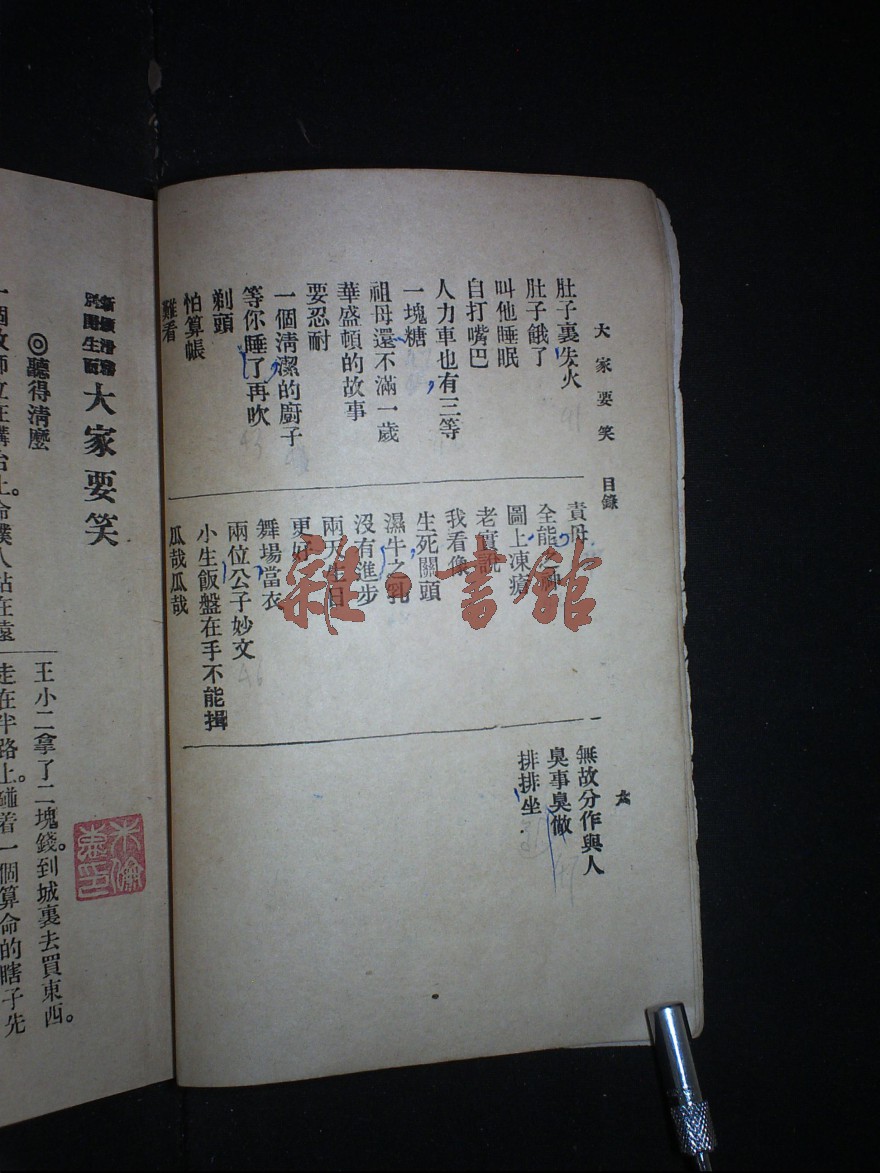 大家要笑 目錄
六
肚子裏失火
肚子餓了
叫他睡眠
自打嘴巴
人力車也有三等
一塊糖
祖母還不滿一歲
華盛頓的故事
要忍耐
一個清潔的廚子
等你睡了再吹
剃頭
怕算帳
難看
責母
全能之神
圖上凍瘡
老實說
我看像
生死關頭
濕牛之乳
沒有進步
兩天生日
更好
舞場當衣
兩位公子妙文
小生飯盤在手不能揖
瓜哉瓜哉
無故分作與人
臭事臭做
排排坐
雜·書館
別開生面
大家要笑
◎聽得清麼
一個教師立在講台上。命僕人站在遠
王小二拿了二塊錢。到城裏去買東西。
走在半路上。碰着一個算命的瞎子先